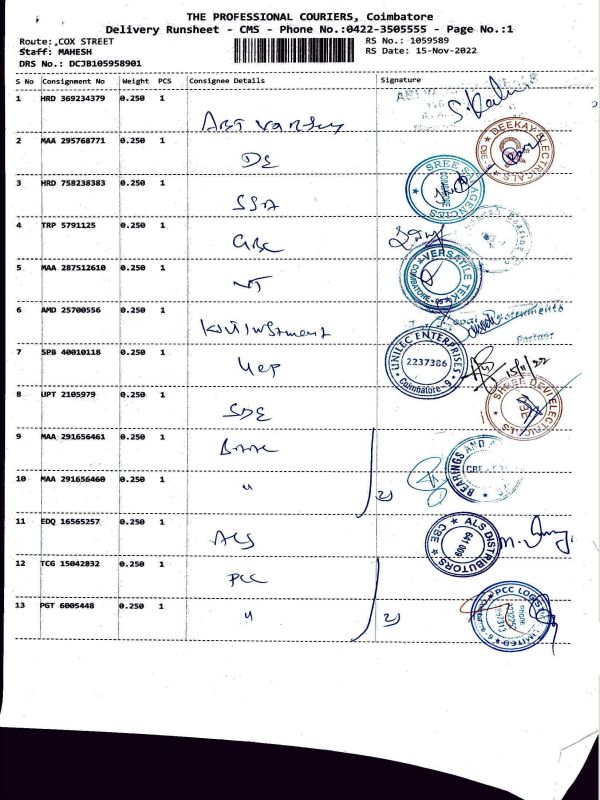 THE PROFESSIONAL COURIERS, Coimbatore
Delivery Runsheet - CMS - Phone No.:0422-3505555 - Page No.:1
Route: ,COX STREET
RS No.: 1059589
Staff: MAHESH
RS Date: 15-Nov-2022
DRS No.: DCJB105958901
S No Consignment No Weight PCS Consignee Details Signature
1 HRD 369234379 0.250 1
2 MAA 295768771 0.250 1 DE
BEEKAY ELECTRICALS CBE
3 HRD 758238383 0.250 1 SSA
SREE SAI AGENCIES
4 TRP 5791125 0.250 1 GBC
5 MAA 287512610 0.250 1 VT
VERSATILE TEK COIMBATORE
6 AMD 25700556 0.250 1
Partner
7 SPB 40010118 0.250 1 UEP
UNILEC ENTERPRISES 2237386 Coimbatore - 9
15/11/22
8 UPT 2105979 0.250 1 SDE
SHREE DEVI ELECTRICALS
9 MAA 291656461 0.250 1
10 MAA 291656460 0.250 1 "
2)
BEARINGS AND
11 EDQ 16565257 0.250 1 ALS
ALS DISTRIBUTORS CBE 641 009
12 TCG 15042832 0.250 1 PCC
13 PGT 6005448 0.250 1 "
2)
PCC LOGISTICS LIMITED